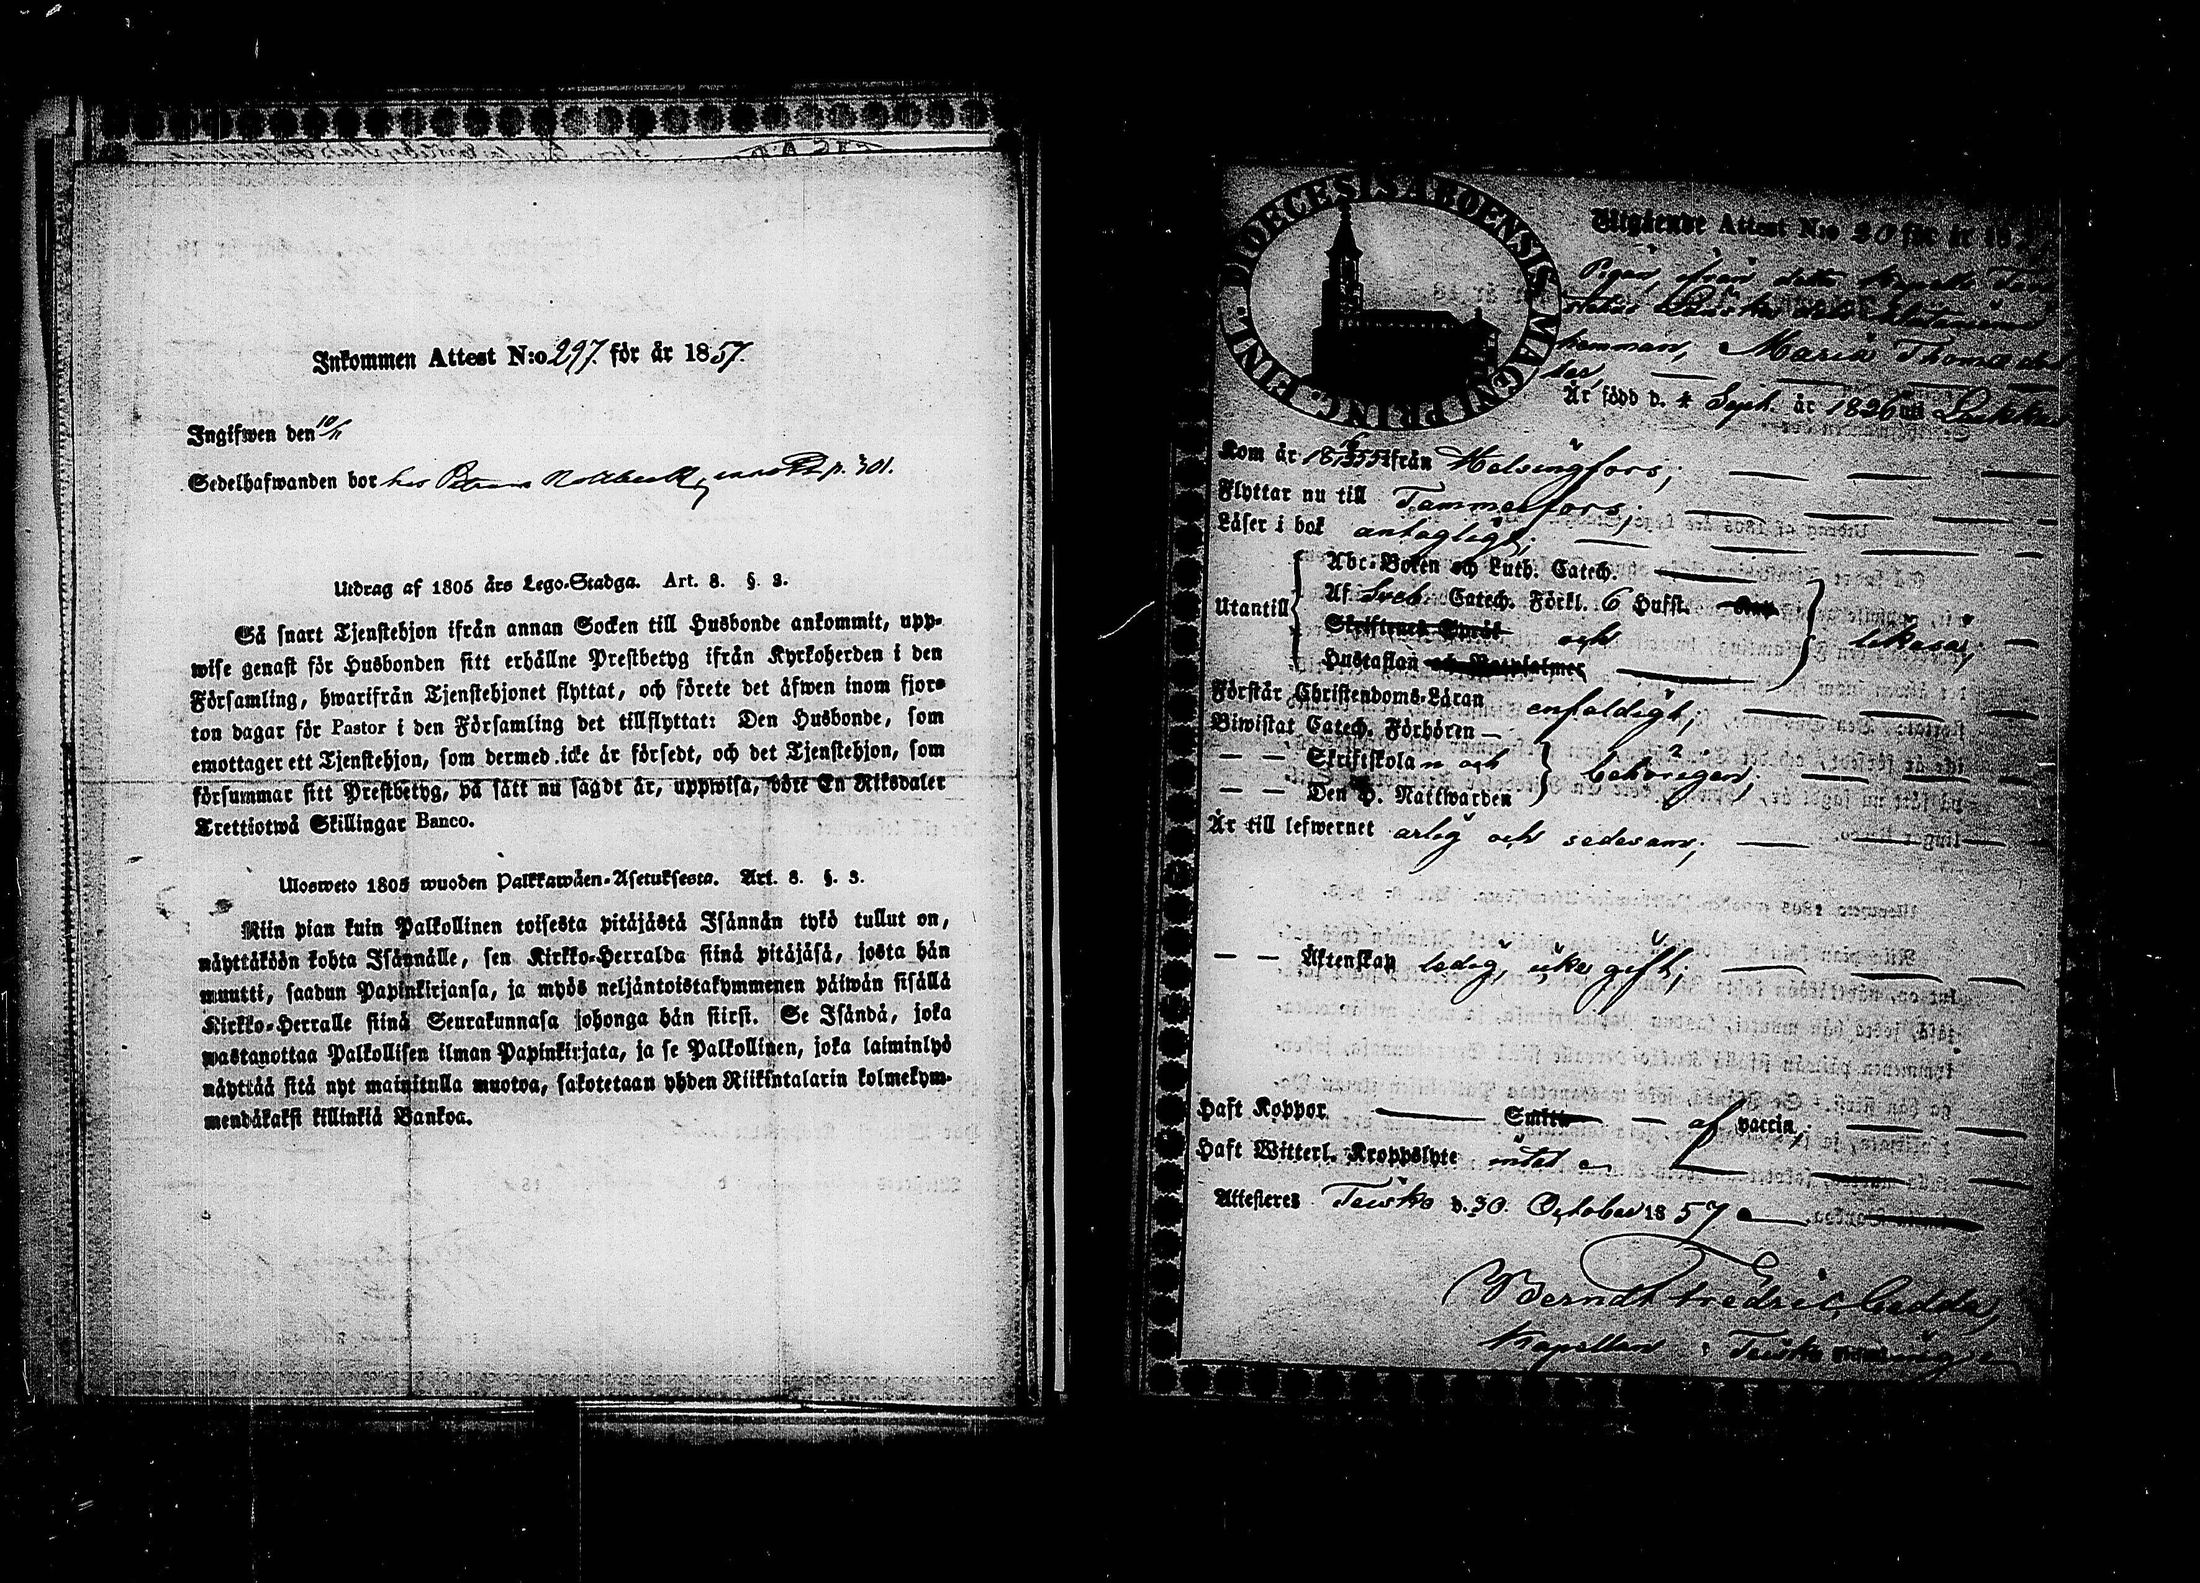 Inkommen Attest N:o 297. för år 1857.
Ingifwen den 10/11
Sedelhafwanden bor hos p. 301.
Utdrag af 1805 års Lego-Stadga. Art. 8. §. 3.
Så snart Tjenstehjon ifrån annan Socken till Husbonde ankommit, upp-
wise genast för Husbonden sitt erhållne Prestbetyg ifrån Kyrkoherden i den
Församling, hwarifrån Tjenstehjonet flyttat, och förete det äfwen inom fjor-
ton dagar för Pastor i den Församling det tillflyttat: Den Husbonde, som
emottager ett Tjenstehjon, som dermed icke är försedt, och det Tjenstehjon, som
försummar sitt Prestbetyg, på sätt nu sagdt är, uppwisa, böte En Riksdaler
Trettiotwå Skillingar Banco.
Ulosweto 1805 wuoden Palkkawäen-Asetuksesta. Art. 8. §. 3.
Niin pian kuin Palkollinen toisesta pitäjästä Isännän tykö tullut on,
näyttäköön kohta Isännälle, sen Kirkko-Herralda siinä pitäjäsä, josta hän
muutti, saadun Papinkirjansa, ja myös neljäntoistakymmenen päiwän sisällä
Kirkko-Herralle siinä Seurakunnasa johonga hän siirsi. Se Isändä, joka
wastanottaa Palkollisen ilman Papinkirjata, ja se Palkollinen, joka laiminlyö
näyttää sitä nyt mainitulla muotoa, sakotetaan yhden Riikintalarin kolmekym-
mendäkaksi killinkiä Bankoa.
DIOECESIS ABOENSIS MAGNI PRINC. FINL.
Utgående Attest N:o 20 för år 18
Pigan, ifrån detta Kapells
hemman, Maria Thomædot
ter,
Är född d. 4 Sept. år 1826 uti
Kom år 1855 ifrån Helsingfors;
Flyttar nu till Tammerfors;
Läser i bok antagligt;
Abc-Boken och Luth. Catech.
Utantill Af Sveb. Catech. Förkl. 6 Hufst.
Skriftenes Språk och likaså;
Hustaflan och Botpsalmer
Förstår Christendoms-Läran enfaldigt;
Biwistat Catech. Förhören
— — Skriftskolan och behörigen;
— — Den H. Nattwarden
Är till lefwernet ärlig och sedesam;
— — Äktenskap ledig, icke gift;
Haft Koppor. Smitt af vaccin;
Haft Witterl. Kroppslyte intet
Attesteres Teisko d. 30. October 1857
Berndt Fredric Gadda,
Kapellan i Teisko